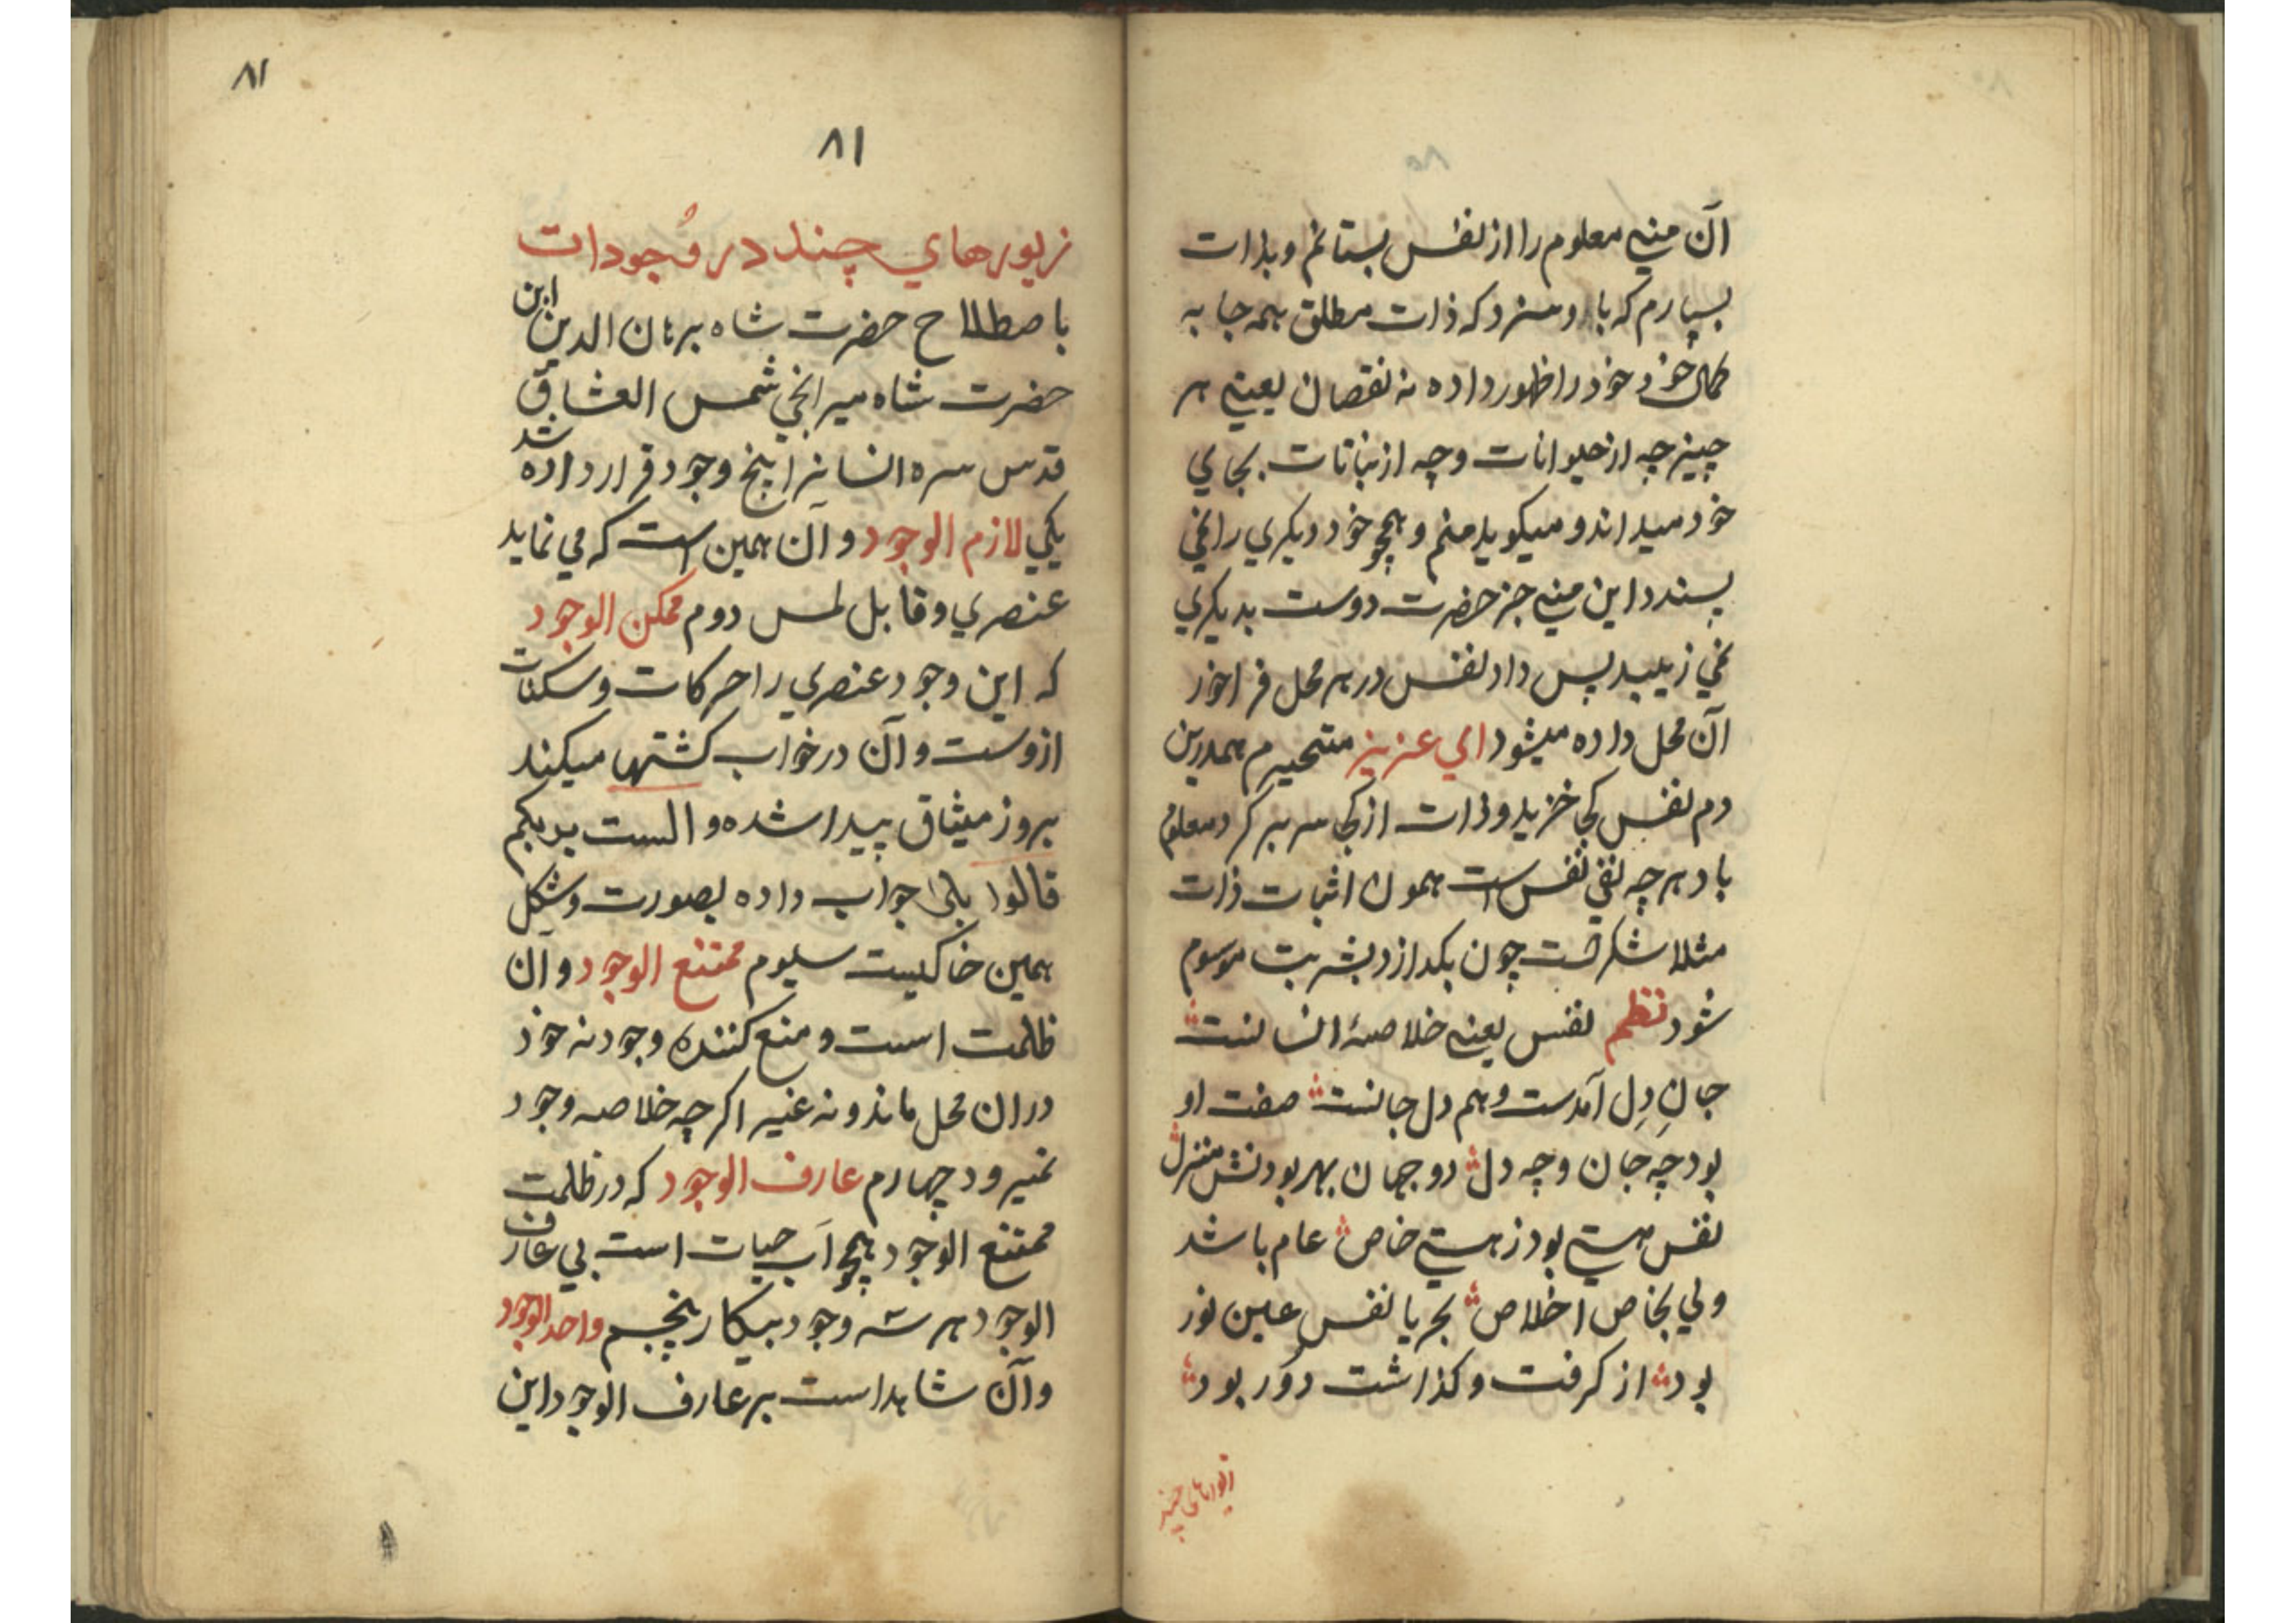 آن منی معلوم را از نفس بستانم و بذات
بسپارم که باو سزد که ذات مطلق همه جا به
کمال خود خود را ظهور داده نه نقصان یعنی هر
چیز چه از حیوانات و چه از نباتات بجای
خود میداند و میگوید منم و همچو خود دیگری را نمی
پسندد این منی جز حضرت دوست بدیگری
نمی زیبد پس داد نفس در هر محل فراخور
آن محل داده میشود ای عزیز متحیرم همدرین
دم نفس کجا خزید و ذات از کجا سر بر کرد معلوم
باد هرچه نفی نفس است همون اثبات ذات
مثلا شکرست چون بگدازد بشربت موسوم
شود نظم نفس یعنی خلاصهٔ انسانست
جانِ دِل آمدست و هم دل جانست صفت او
بود چه جان و چه دل دو جهان بهر بودنش منزل
نفس هستی بود ز هستی خاص عام باشد
ولی بخاص اخلاص بحریا نفس عین نور
بود از گرفت و گذاشت دور بود
۸۱
۸۱
زیورهای چند در وُجودات
باصطلاح حضرت شاه برهان الدین ابن
حضرت شاه میرانجی شمس العشاق
قدس سره انسانرا پنج وجود قرار داده شد
یکی لازم الوجود و آن همین است که می نماید
عنصری و قابل لمس دوم ممکن الوجود
که این وجود عنصری را حرکات و سکنات
ازوست و آن در خواب گشتها میکند
بروز میثاق پیدا شده و الست بربکم
قالوا بلی جواب داده بصورت و شکل
همین خاکیست سیوم ممتنع الوجود و آن
ظلمت است و منع کننده وجود نه خود
دران محل ماند و نه غیر اگرچه خلاصه وجود
نمیرود چهارم عارف الوجود که در ظلمت
ممتنع الوجود همچو آب حیات است بی عارف
الوجود هر سه وجود بیکار پنجم واحد الوجود
و آن شاهد است بر عارف الوجود این